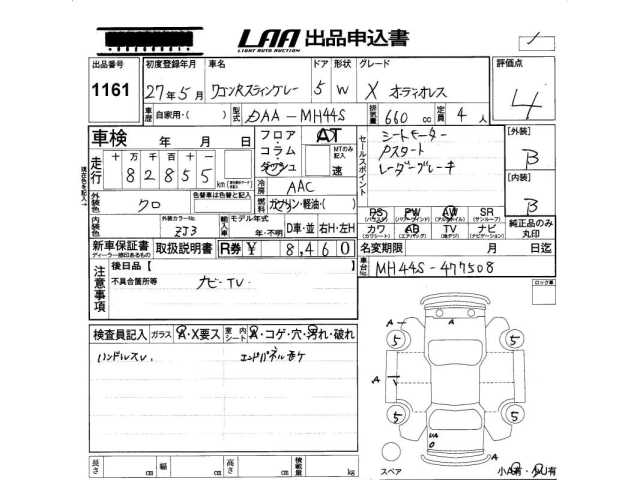 LAA 出品申込書
LIGHT AUTO AUCTION
出品番号 初度登録年月 車名 ドア 形状 グレード 評価点
1161 27年5月 ワゴンRスティングレー 5 W X オーディオレス 4
車歴 自家用・( ) 型式 DAA-MH44S 排気量 660 cc 定員 4 人
車検 年 月 日 フロア・コラム・ダッシュ AT セールスポイント シートヒーター [外装]
MTのみ記入 速 Pスタート B
走行 十 万 千 百 十 一 レーダーブレーキ
82855 km [内装]
現在色を記入 冷房 AAC B
外装色 クロ 色替車は色替と記入 燃料 ガソリン・軽油・( )
PS PW AW SR
(パワステ) (パワーウインド) (アルミホイル) (サンルーフ)
純正品のみ丸印
内装色 外装カラーNo ZJ3 輸入車 モデル年式 年・不明 D車・並 右H・左H カワ AB TV ナビ
(カワシート) (エアバッグ) (地デジ) (ナビゲーション)
新車保証書 取扱説明書 R券 ¥ 8,460 名変期限 月 日迄
ディーラー捺印あるもの
車台No MH44S-477508
注意事項 後日品【 】
不具合箇所等 ナビ・TV・
ロック車
検査員記入 ガラス A・X要ス 室内シート A・コゲ・穴・汚れ・破れ
ハンドルスレ エンドパネルサケ
A
A A
5 5
A
5 5
UA
A
長さ cm 幅 cm 高さ cm 積載量 kg
スペア 小A有・小U有